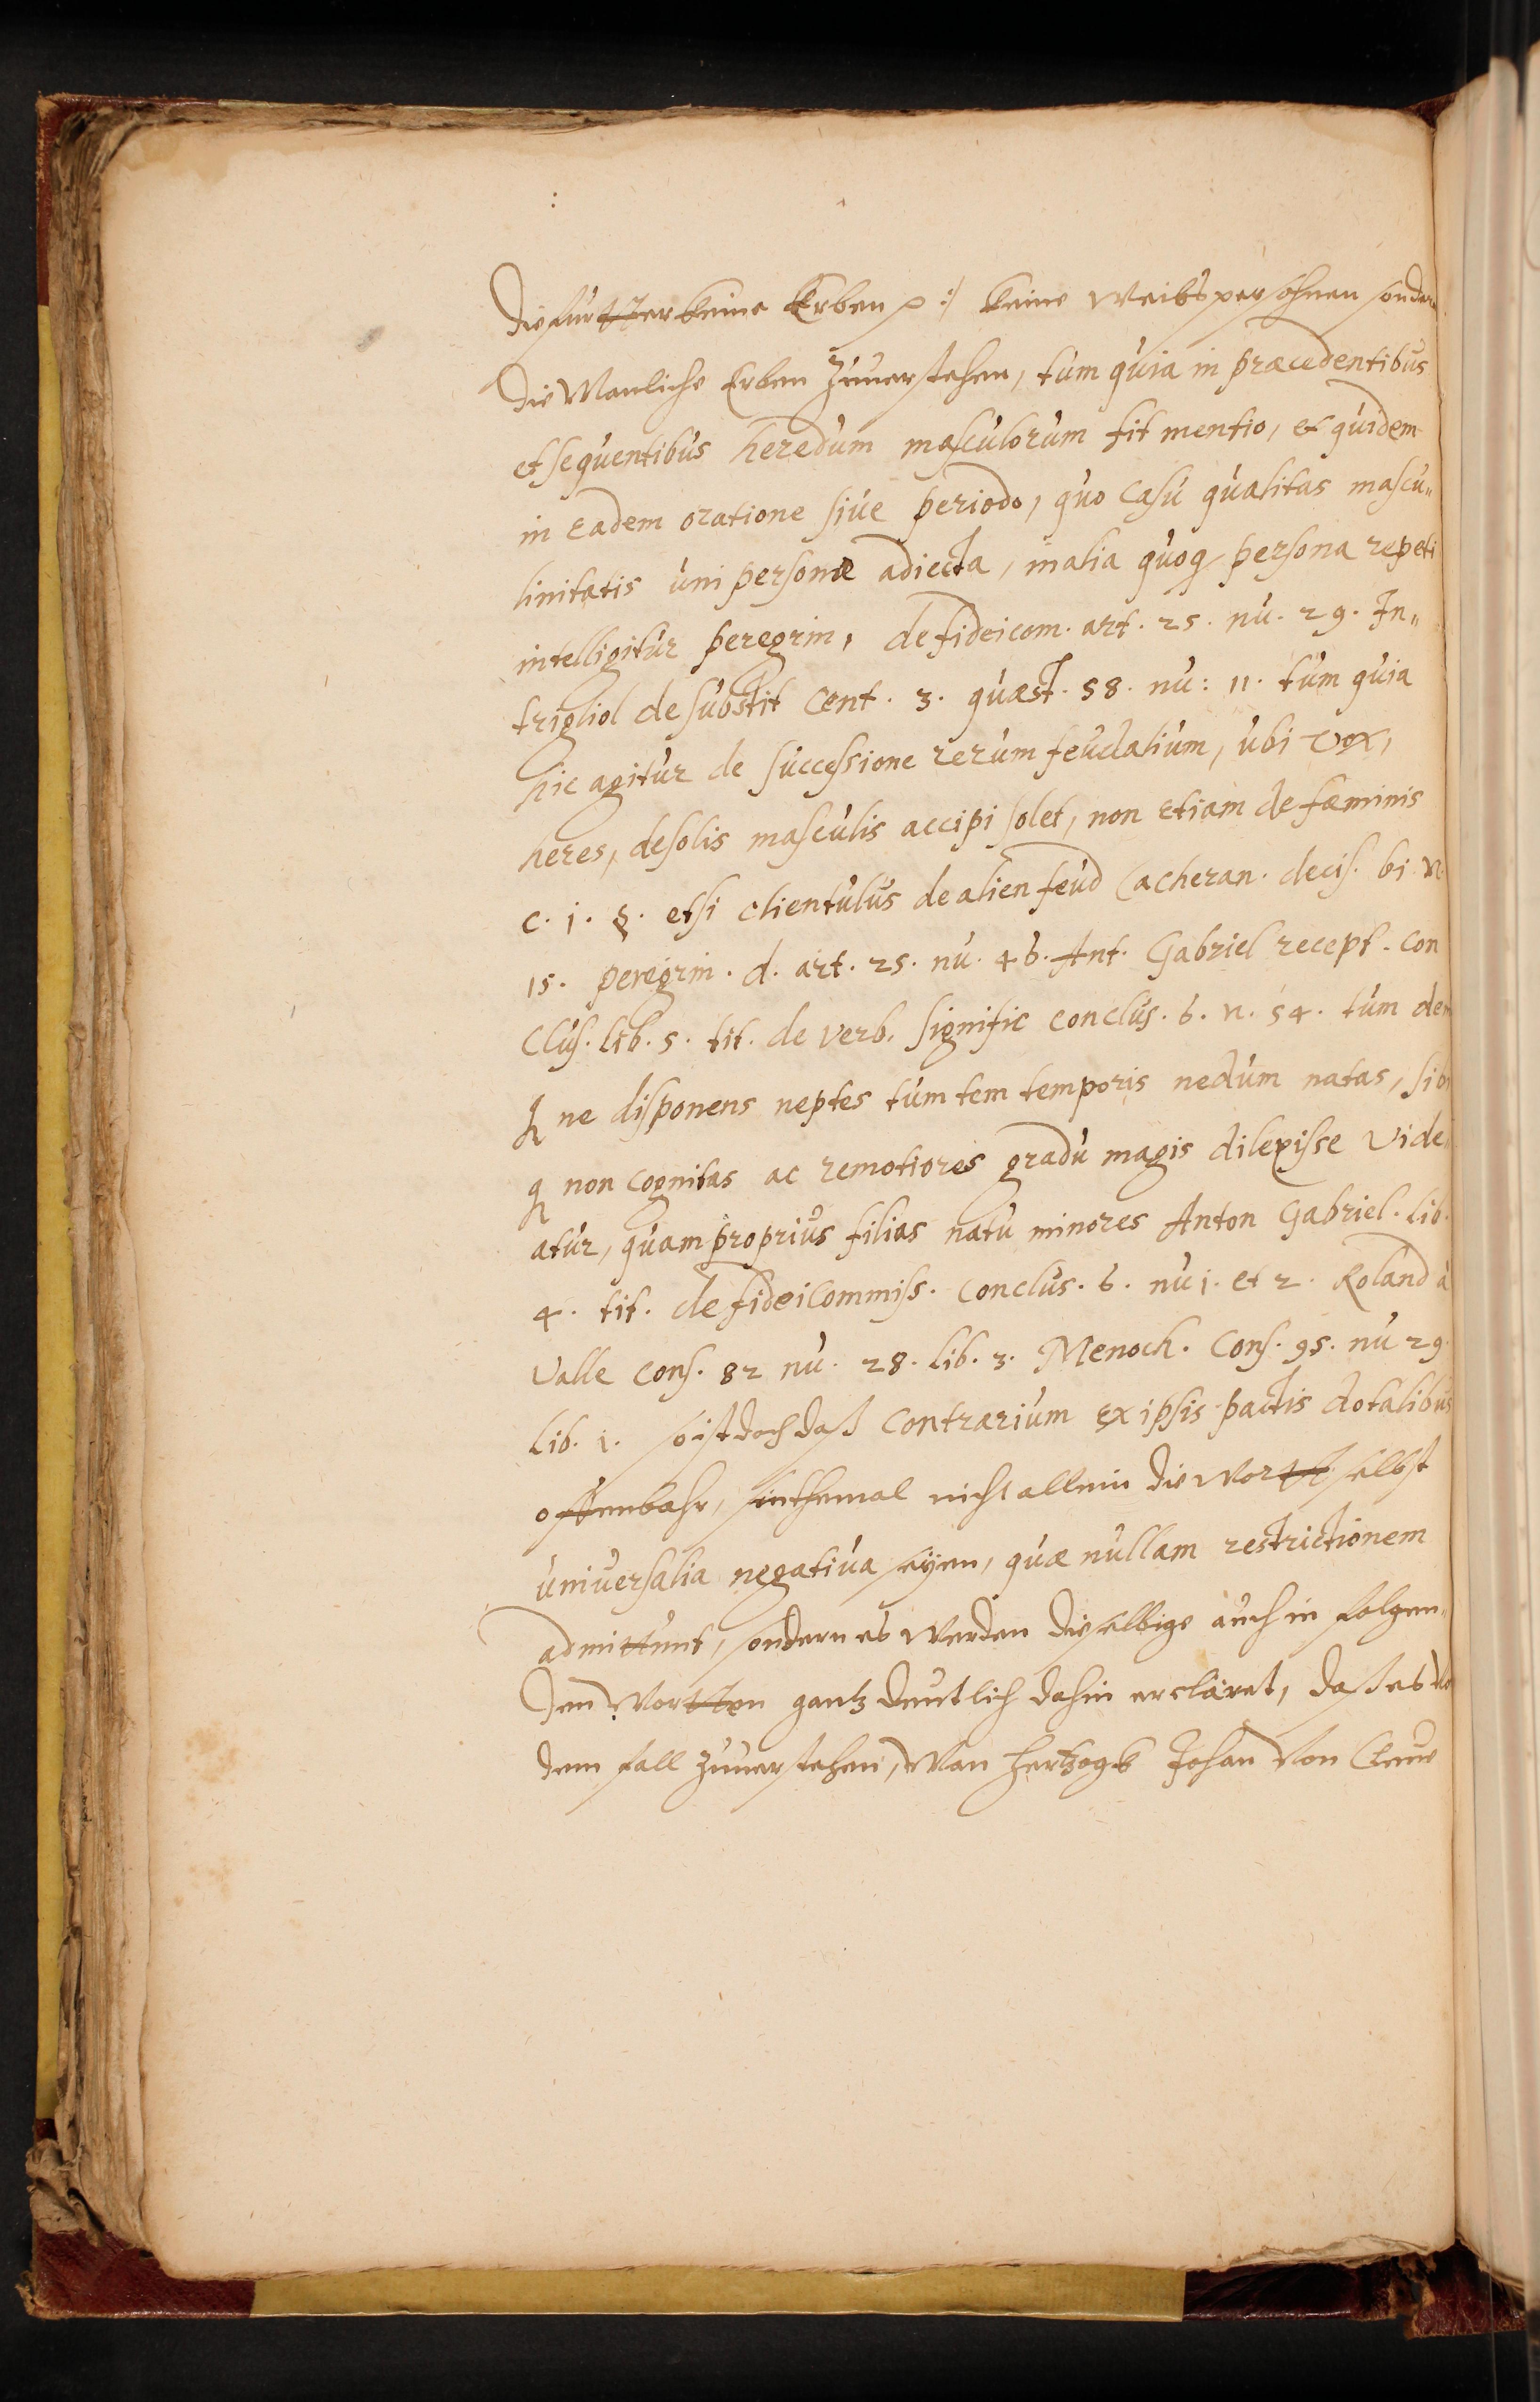 die fürtter keine Erben p :/ keine Weibspersohnen sondern
die Manliche Erben zuuerstehen, tum quia in præcedentibus
et sequentibus heredum masculorum fit mentio, et quidem
in eadem oratione siue periodo, quo casu qualitas mascu„
linitatis uni personæ adiecta, in alia quoq persona repeti
intelligitur peregrin, de fideicom. art. 25. nu. 29. In„
trigliol de substit Cent. 3. quæst. 58. nu: 11. tum quia
hic agitur de successione rerum feudalium, ubi vox,
heres, de solis masculis accipi solet, non etiam de fæminis
c. 1. §. etsi clientulus de alien feud Cacheran. decis. 61 n.
15. peregrin. d. art. 25. nu. 46. Ant. Gabriel recept. con
clus. lib. 5. tit. de verb. signific conclus. 6. n. 54. tum den
q ne disponens neptes tum tem temporis nedum natas, sibi
q non cognitas ac remotiores gradu magis dilexisse vide„
atur, quam proprius filias natu minores Anton Gabriel. lib.
4. tit. de fideicommiss. conclus. 6. nu 1. et 2. Roland à
Valle cons. 82 nu. 28. lib. 3. Menoch. Cons. 95. nu 29.
lib. 1. so ist doch daß contrarium ex ipsis pactis dotalibus
offenbahr, sinthemal nicht allein die Wortt selbst
uniuersalia negatiua seÿen, quæ nullam restrictionem
admittunt, sondern es werden dieselbige auch in folgen„
den Wortten gantz deutlich dahin erclaret, daß es
dem fall zuuerstehen, Wan Hertzogk Johan von Cleue